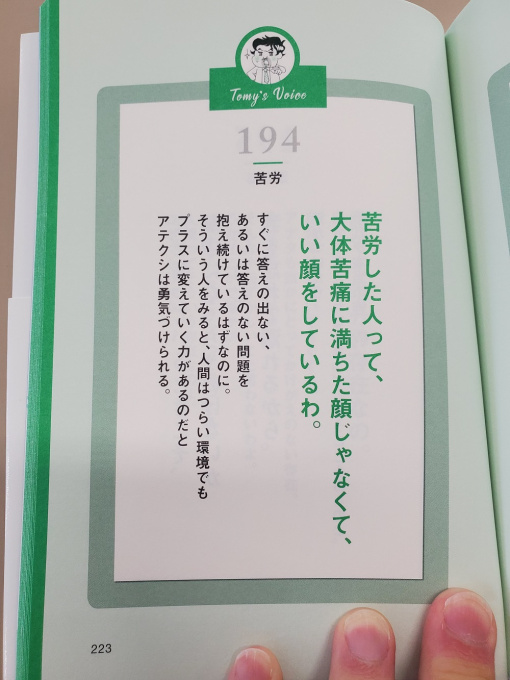 Tomy's Voice
194
苦労
苦労した人って、
大体苦痛に満ちた顔じゃなくて、
いい顔をしているわ。
すぐに答えの出ない、
あるいは答えのない問題を
抱え続けているはずなのに。
そういう人をみると、人間はつらい環境でも
プラスに変えていく力があるのだと
アテクシは勇気づけられる。
223